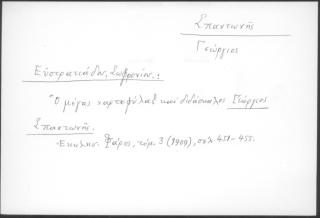 Σπαντωνῆς
Γεώργιος
Εὐστρατιάδου, Σωφρονίου:
Ὁ μέγας χαρτοφύλαξ καὶ διδάσκαλος Γεώργιος
Σπαντωνῆς.
Ἐκκλησ. Φάρος, τόμ. 3 (1909), σελ. 451-455.